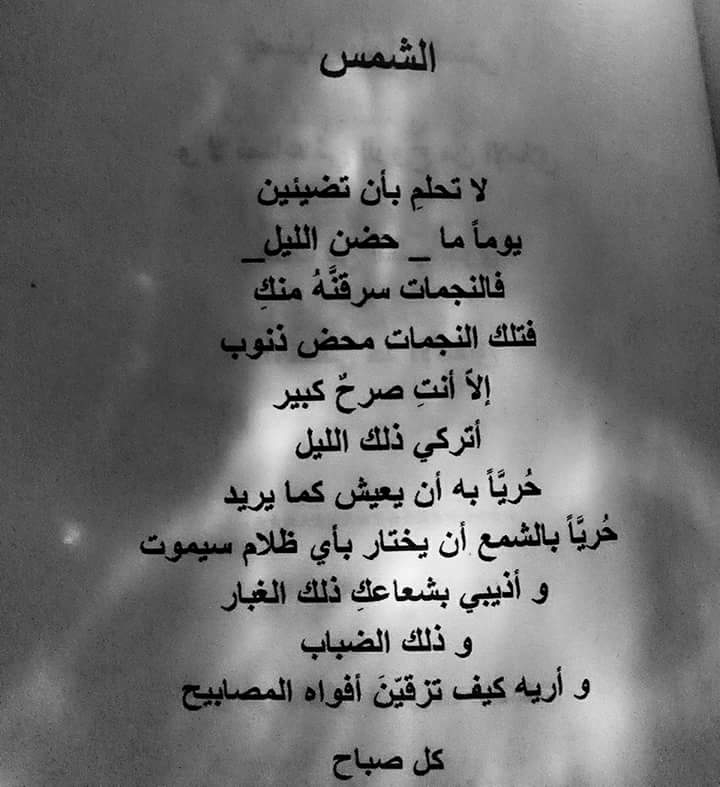 الشمس
لا تحلمِ بأن تضيئين
يوماً ما _ حضن الليل_
فالنجمات سرقنَّهُ منكِ
فتلك النجمات محض ذنوب
إلاّ أنتِ صرحٌ كبير
أتركي ذلك الليل
حُريَّاً به أن يعيش كما يريد
حُريَّاً بالشمع أن يختار بأي ظلام سيموت
و أذيبي بشعاعكِ ذلك الغبار
و ذلك الضباب
و أريه كيف تزقيّنَ أفواه المصابيح
كل صباح